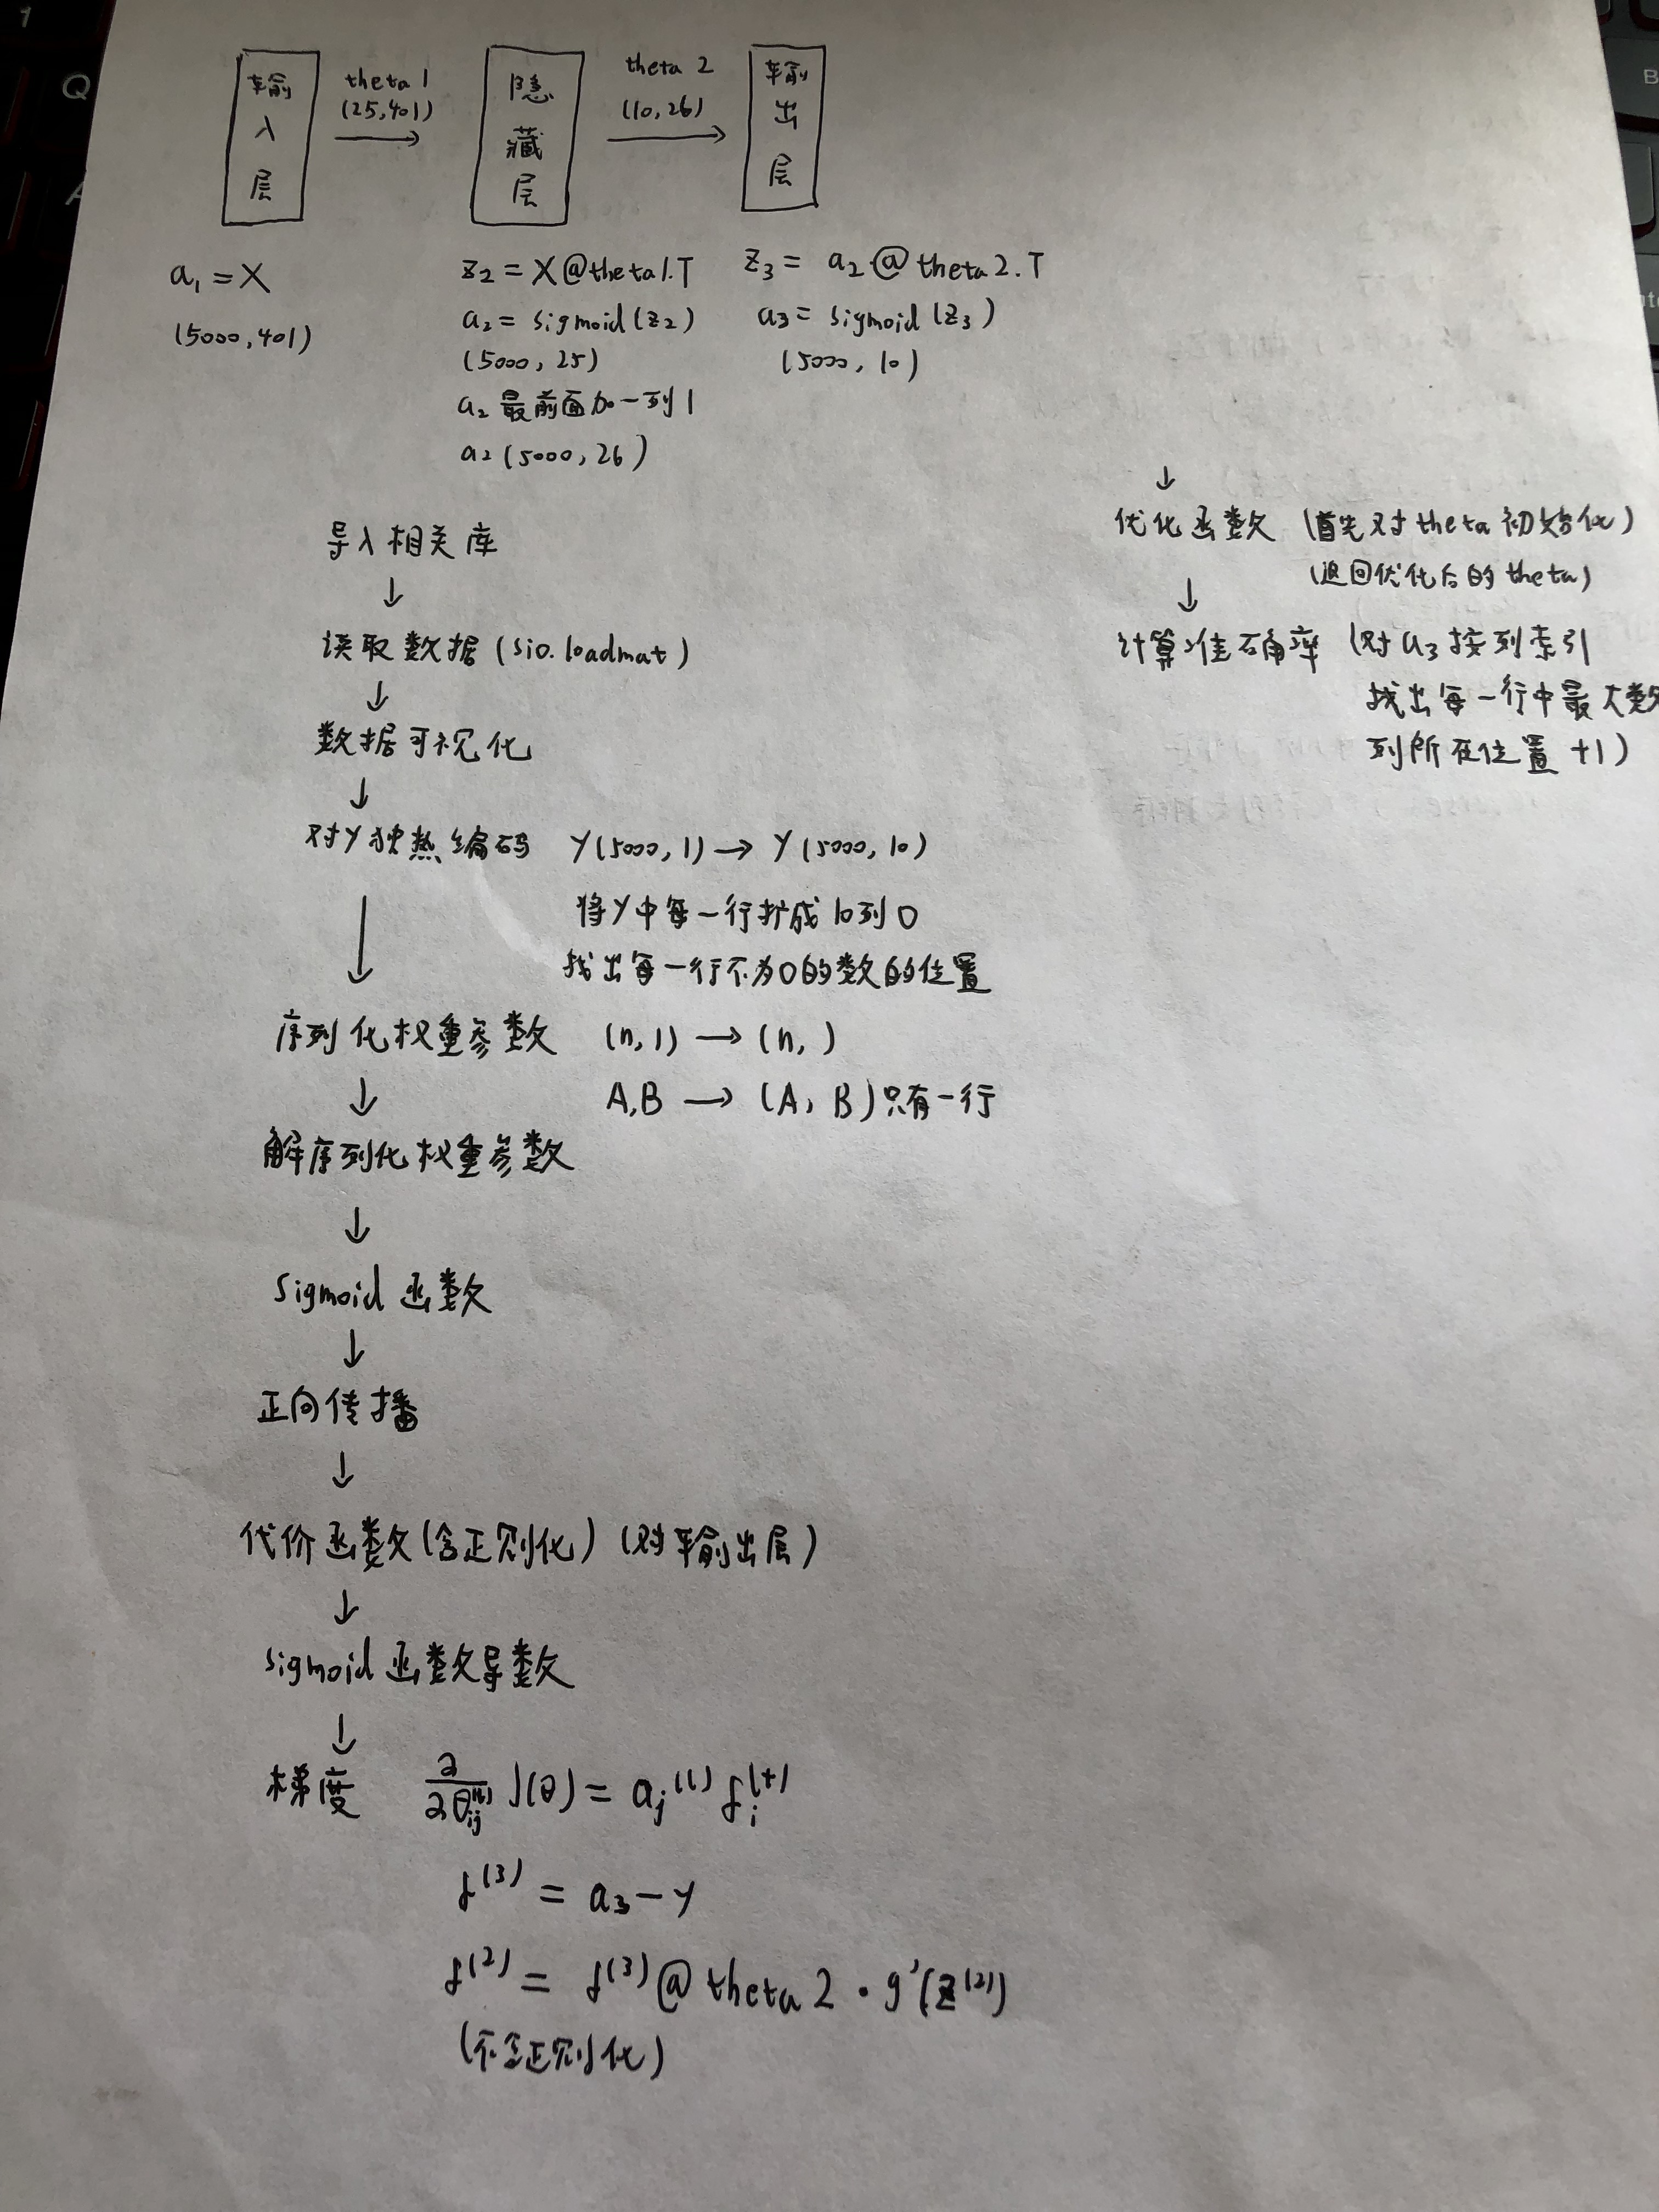 输入层
theta 1
(25,401)
隐藏层
theta 2
(10,26)
输出层
a₁ = X
(5000,401)
z₂ = X@theta1.T
a₂ = sigmoid(z₂)
(5000, 25)
a₂ 最前面加一列1
a₂(5000,26)
z₃ = a₂@theta2.T
a₃ = sigmoid(z₃)
(5000, 10)
导入相关库
↓
读取数据(sio.loadmat)
↓
数据可视化
↓
对y独热编码 y(5000,1) → y(5000,10)
将y中每一行扩成10列0
找出每一行不为0的数的位置
↓
序列化权重参数 (n,1) → (n, )
A,B → (A, B)只有一行
↓
解序列化权重参数
↓
sigmoid 函数
↓
正向传播
↓
代价函数(含正则化)(对输出层)
↓
sigmoid 函数导数
↓
梯度 ∂/∂θᵢⱼ⁽ˡ⁾ J(θ) = aⱼ⁽ˡ⁾ δᵢ
δ⁽³⁾ = a₃ - y
δ⁽²⁾ = δ⁽³⁾@theta2 · g'(z⁽²⁾)
(不含正则化)
↓
优化函数 (首先对theta初始化)
(返回优化后的theta)
↓
计算准确率 (对a₃按列索引
找出每一行中最大数
列所在位置+1)